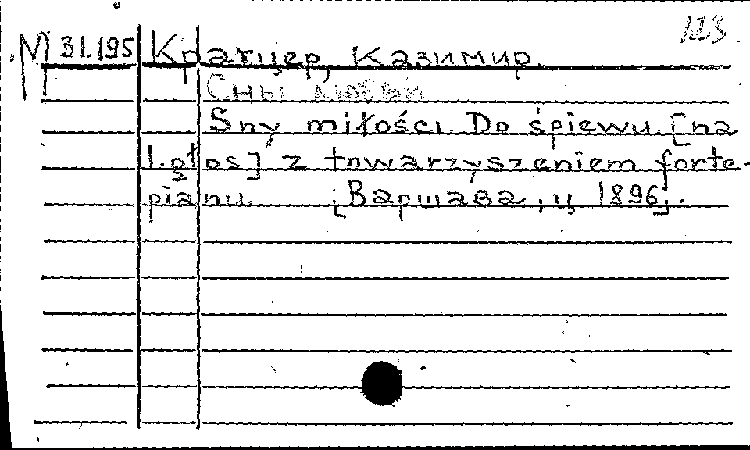 113
М 31.195 Кратцер, Казимир.
Сны любви
Sny miłości. Do śpiewu [na
1. głos] z towarzyszeniem forte-
pianu. [Варшава, ц. 1896].